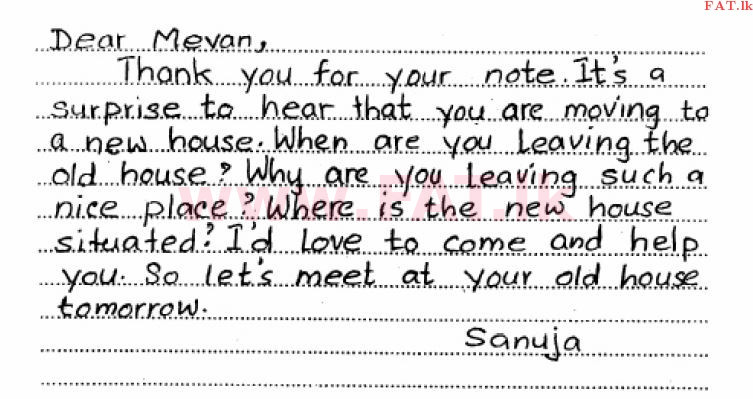 FAT.lk
Dear Mevan,
Thank you for your note. It's a
surprise to hear that you are moving to
a new house. When are you leaving the
old house? Why are you leaving such a
www.FAT.lk
nice place? Where is the new house
situated? I'd love to come and help
you. So let's meet at your old house
tomorrow.
Sanuja